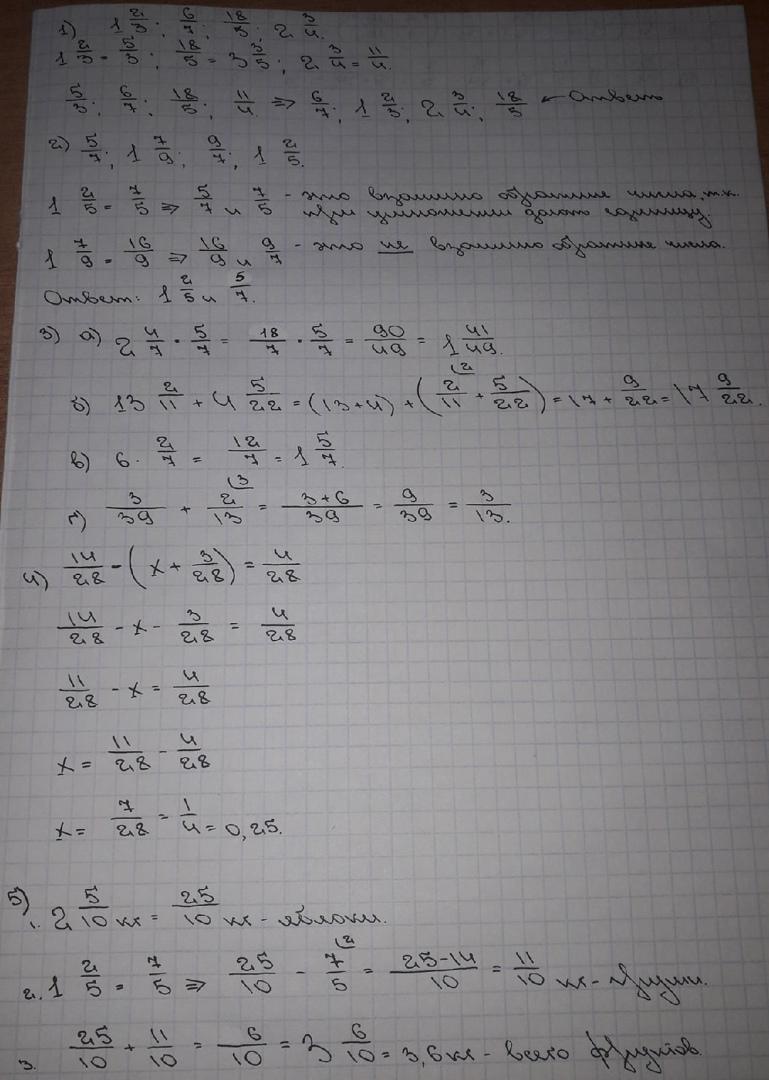 1) 1 2/3; 6/7; 18/5; 2 3/4.
1 2/3 = 5/3; 18/5 = 3 3/5; 2 3/4 = 11/4.
5/3; 6/7; 18/5; 11/4 ⇒ 6/7; 1 2/3; 2 3/4; 18/5 ← Ответ
2) 5/7; 1 7/9; 9/7; 1 2/5.
1 2/5 = 7/5 ⇒ 5/7 и 7/5 - это взаимно обратные числа, т.к.
при умножении дают единицу.
1 7/9 = 16/9 ⇒ 16/9 и 9/7 - это не взаимно обратные числа.
Ответ: 1 2/5 и 5/7.
3) а) 2 4/7 · 5/7 = 18/7 · 5/7 = 90/49 = 1 41/49.
б) 13 2/11 + 4 5/22 = (13+4) + (2/11 (2 + 5/22) = 17 + 9/22 = 17 9/22.
в) 6 · 2/7 = 12/7 = 1 5/7.
г) 3/39 + 2/13 (3 = 3+6/39 = 9/39 = 3/13.
4) 14/28 - (x + 3/28) = 4/28
14/28 - x - 3/28 = 4/28
11/28 - x = 4/28
x = 11/28 - 4/28
x = 7/28 = 1/4 = 0,25.
5)
1. 2 5/10 кг = 25/10 кг - яблоки.
2. 1 2/5 = 7/5 ⇒ 25/10 - 7/5 (2 = 25-14/10 = 11/10 кг - груши.
3. 25/10 + 11/10 = 6/10 = 3 6/10 = 3,6 кг - всего фруктов.